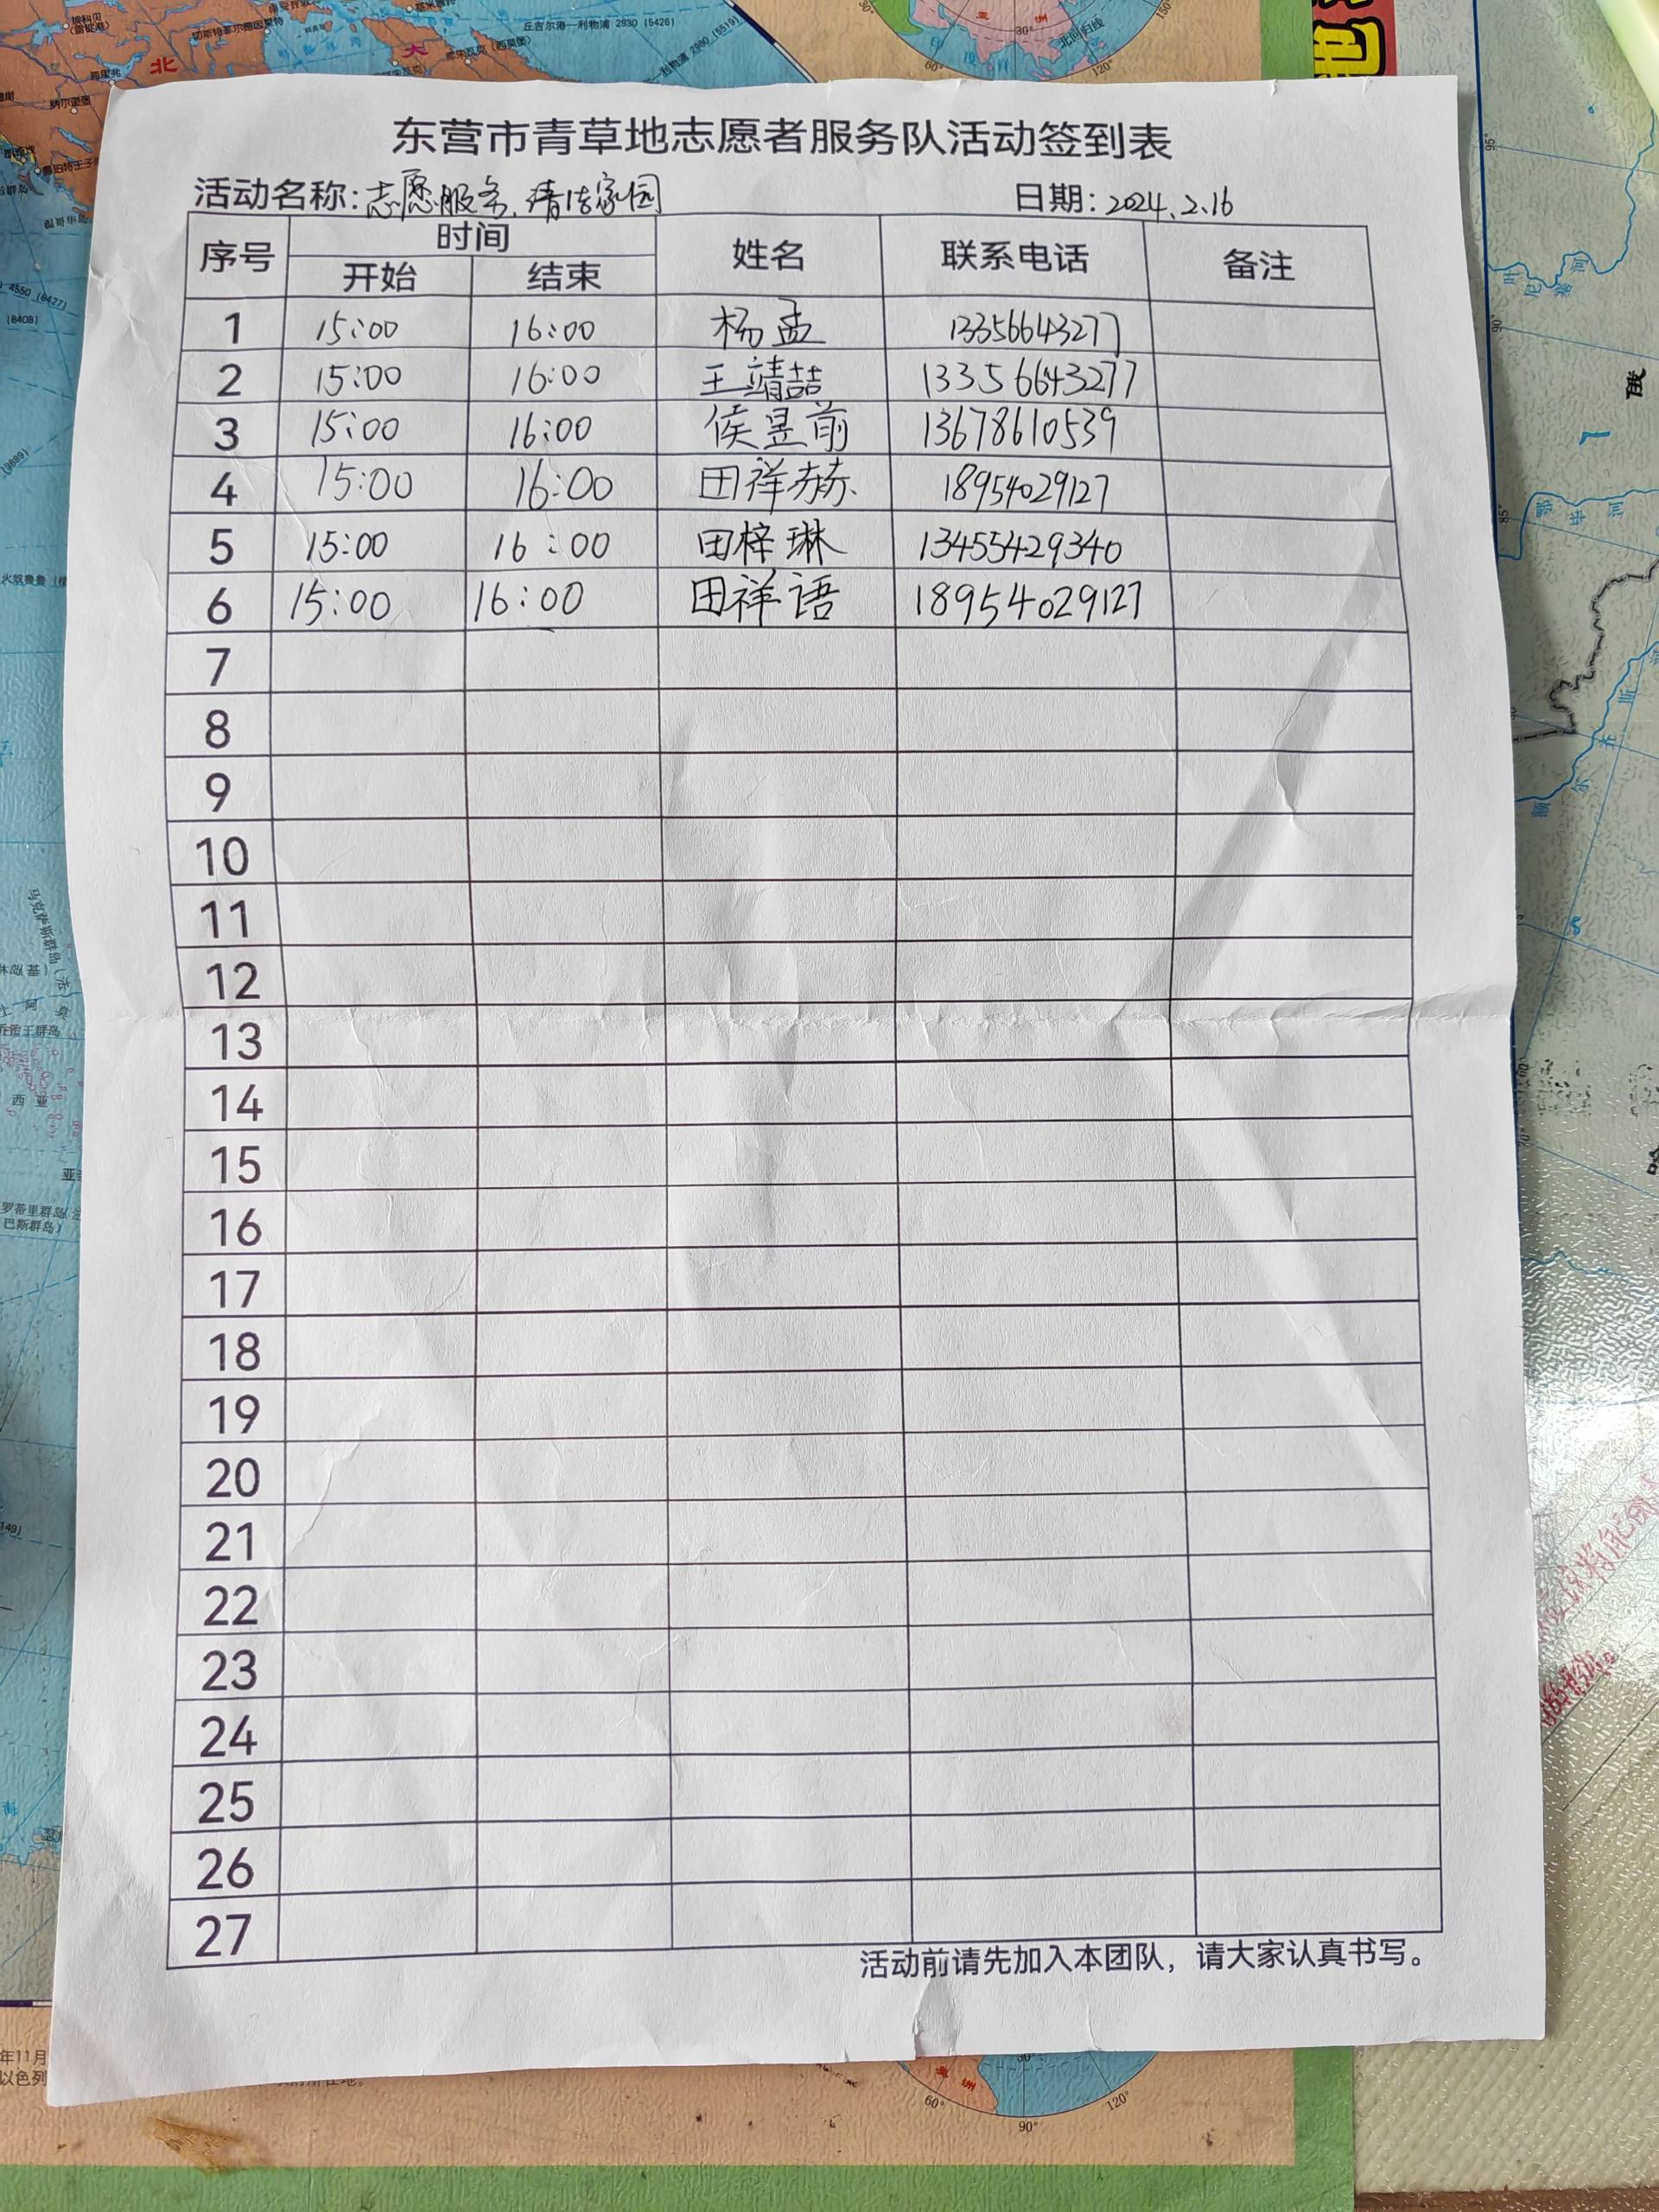 东营市青草地志愿者服务队活动签到表
活动名称:志愿服务,清洁家园
日期:2024.2.16
序号 时间 姓名 联系电话 备注
开始 结束
1 15:00 16:00 杨孟 13356643277
2 15:00 16:00 王靖喆 13356643277
3 15:00 16:00 侯昱前 13678610539
4 15:00 16:00 田祥赫 18954029127
5 15:00 16:00 田梓琳 13455429340
6 15:00 16:00 田祥语 18954029127
7
8
9
10
11
12
13
14
15
16
17
18
19
20
21
22
23
24
25
26
27
活动前请先加入本团队，请大家认真书写。